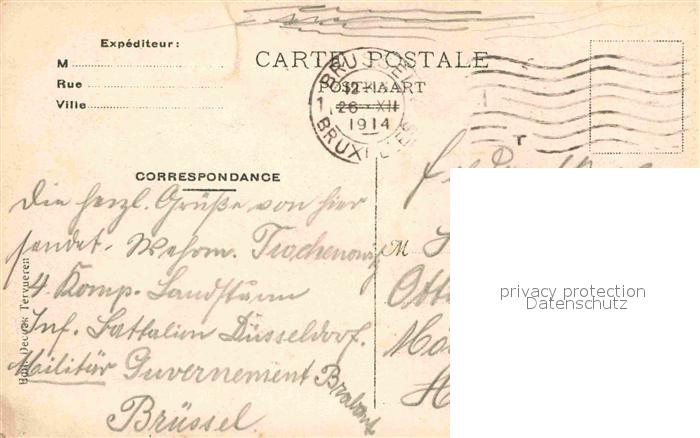 Expéditeur:
M
Rue
Ville
CARTE POSTALE
POSTKAART
12-1
26 XII
1914
T
CORRESPONDANCE
Die herzl. Grüße von hier
sendet. Wehrm.
4. Komp. Landsturm
Inf. Battalion Düsseldorf.
Militär Guvernement Brabant
Brüssel.
M
Decock Tervueren
privacy protection
Datenschutz